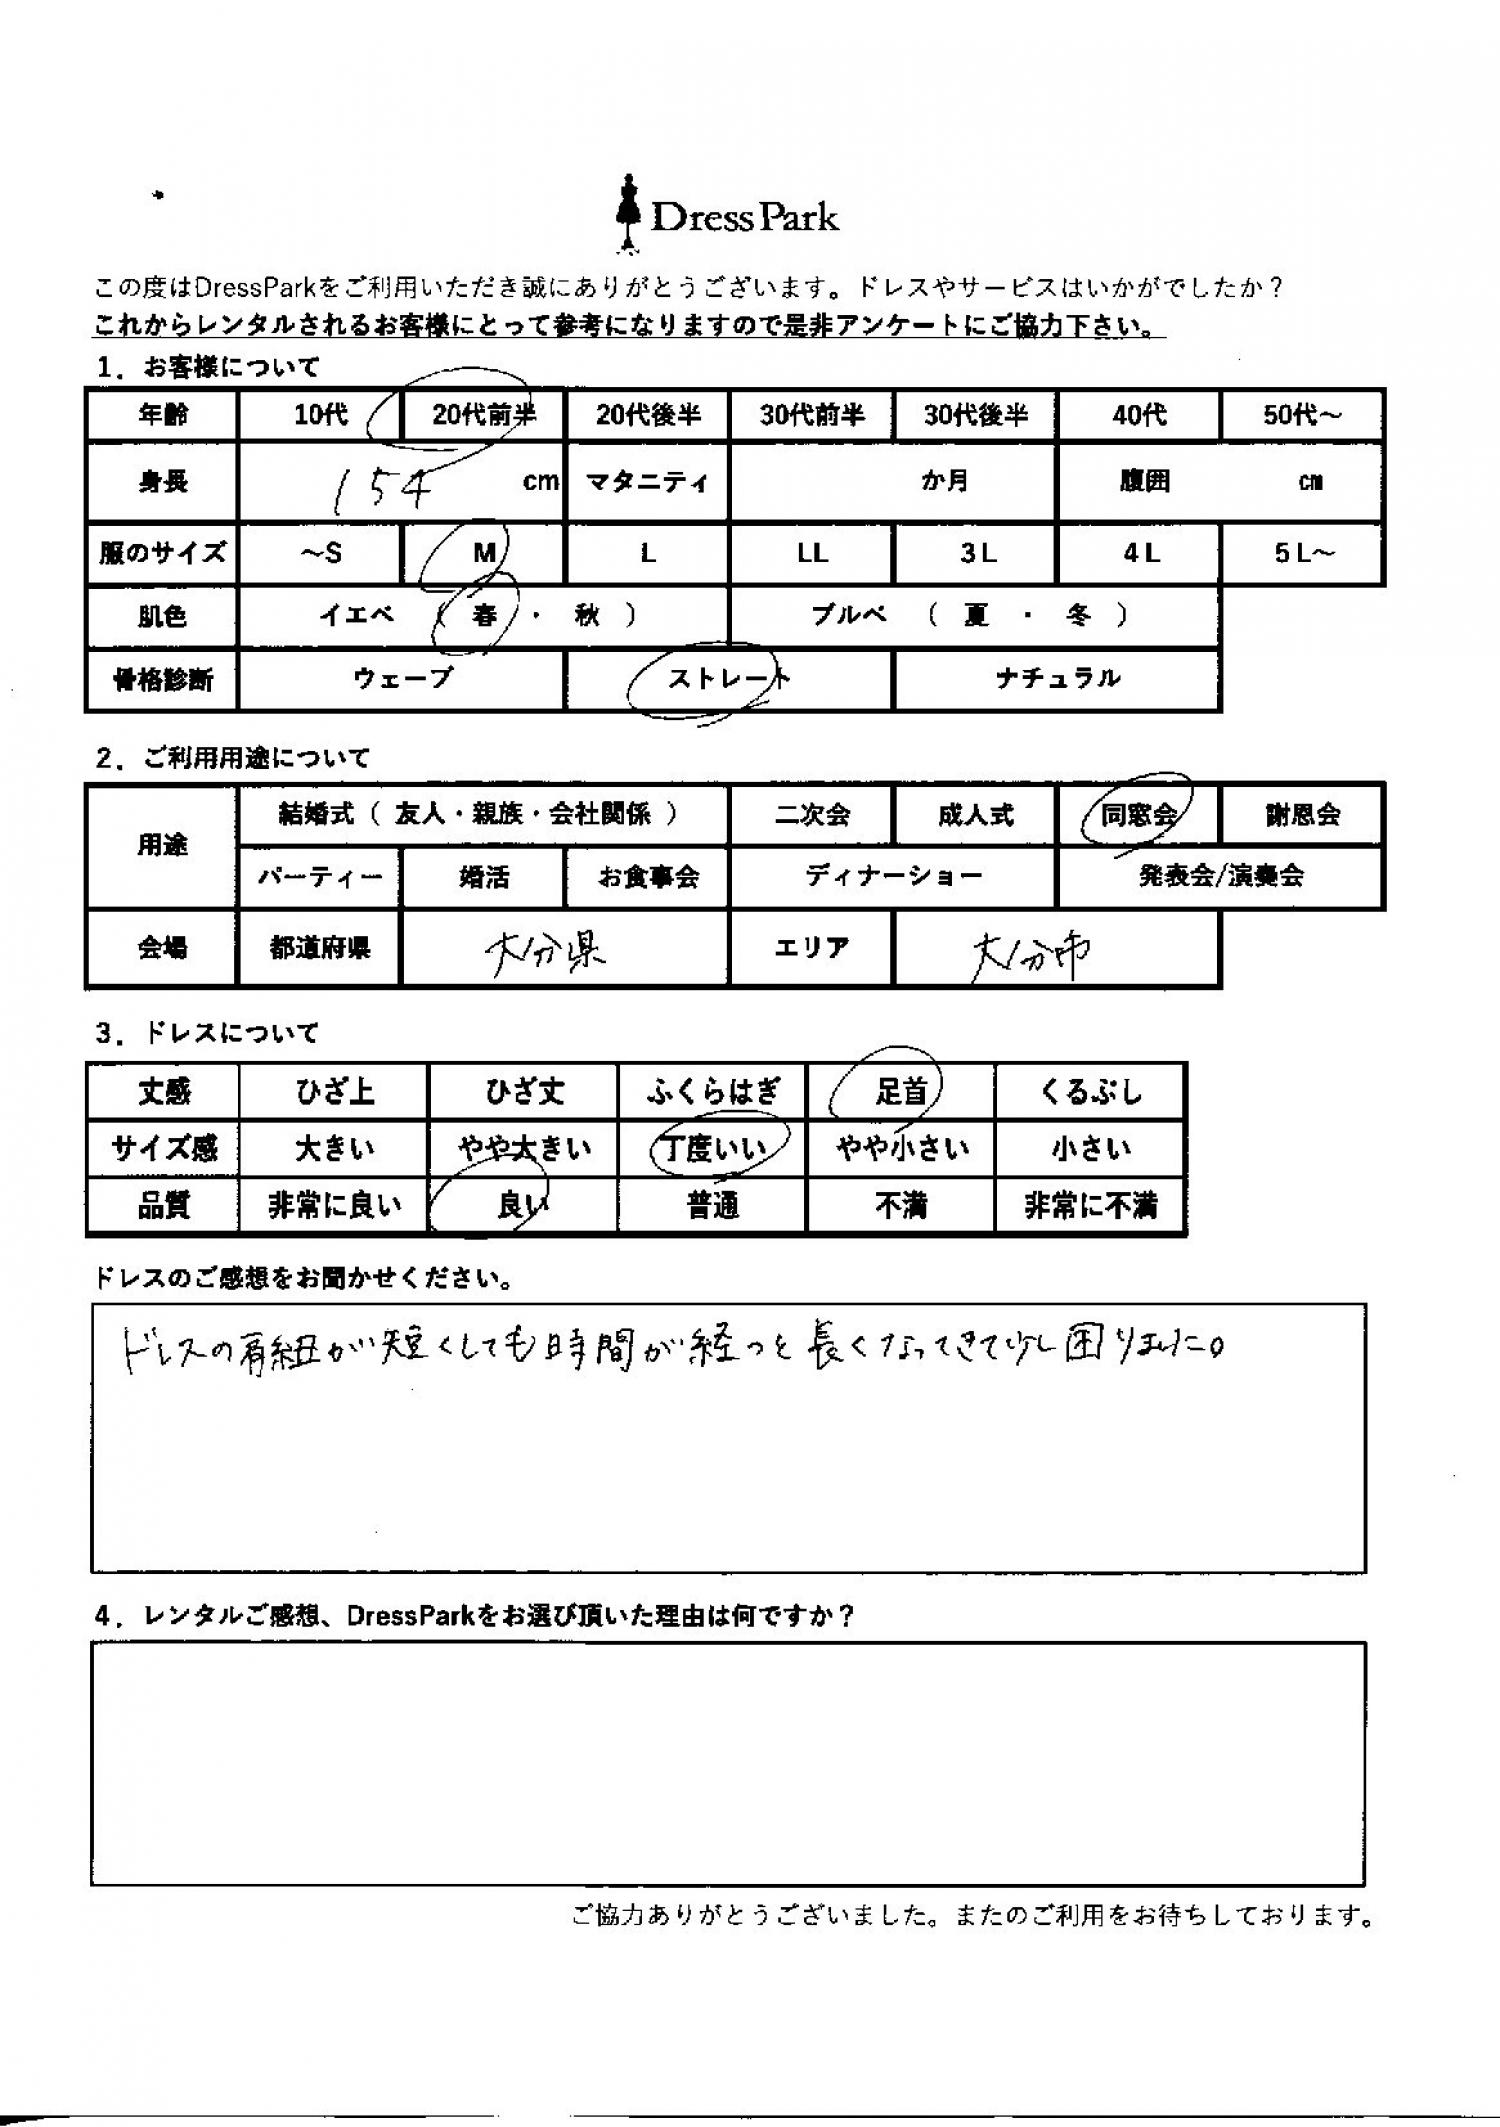 DressPark
この度はDressParkをご利用いただき誠にありがとうございます。ドレスやサービスはいかがでしたか？
これからレンタルされるお客様にとって参考になりますので是非アンケートにご協力下さい。
1．お客様について
年齢 10代 20代前半 20代後半 30代前半 30代後半 40代 50代～
身長 154 cm マタニティ か月 腹囲 cm
服のサイズ ～S M L LL 3L 4L 5L～
肌色 イエベ （ 春 ・ 秋 ） ブルベ （ 夏 ・ 冬 ）
骨格診断 ウェーブ ストレート ナチュラル
2．ご利用用途について
用途 結婚式（ 友人・親族・会社関係 ） 二次会 成人式 同窓会 謝恩会
パーティー 婚活 お食事会 ディナーショー 発表会/演奏会
会場 都道府県 大分県 エリア 大分市
3．ドレスについて
丈感 ひざ上 ひざ丈 ふくらはぎ 足首 くるぶし
サイズ感 大きい やや大きい 丁度いい やや小さい 小さい
品質 非常に良い 良い 普通 不満 非常に不満
ドレスのご感想をお聞かせください。
ドレスの肩紐が短くしても時間が経つと長くなってきて少し困りました。
4．レンタルご感想、DressParkをお選び頂いた理由は何ですか？
ご協力ありがとうございました。またのご利用をお待ちしております。